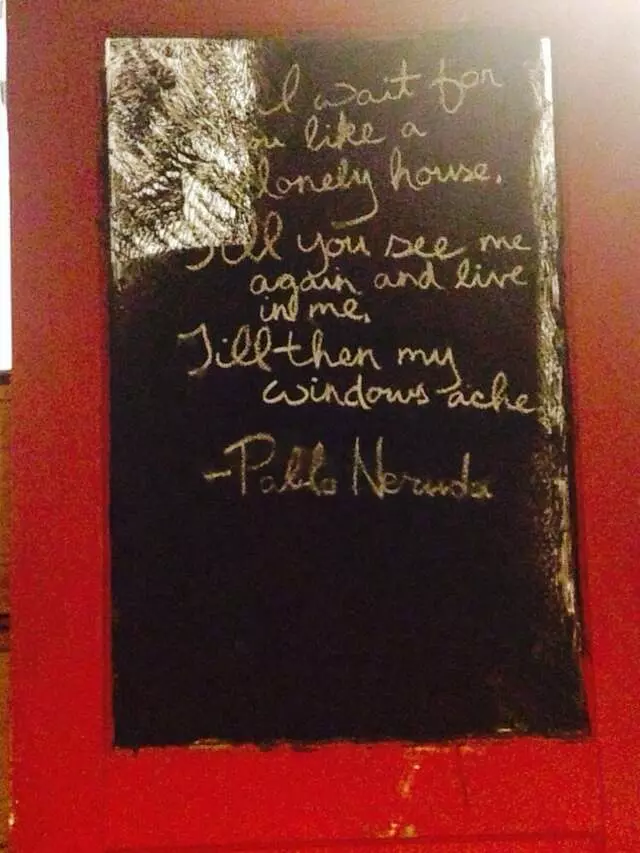 I wait for
you like a
lonely house.
Till you see me
again and live
in me.
Till then my
windows ache
-Pablo Neruda